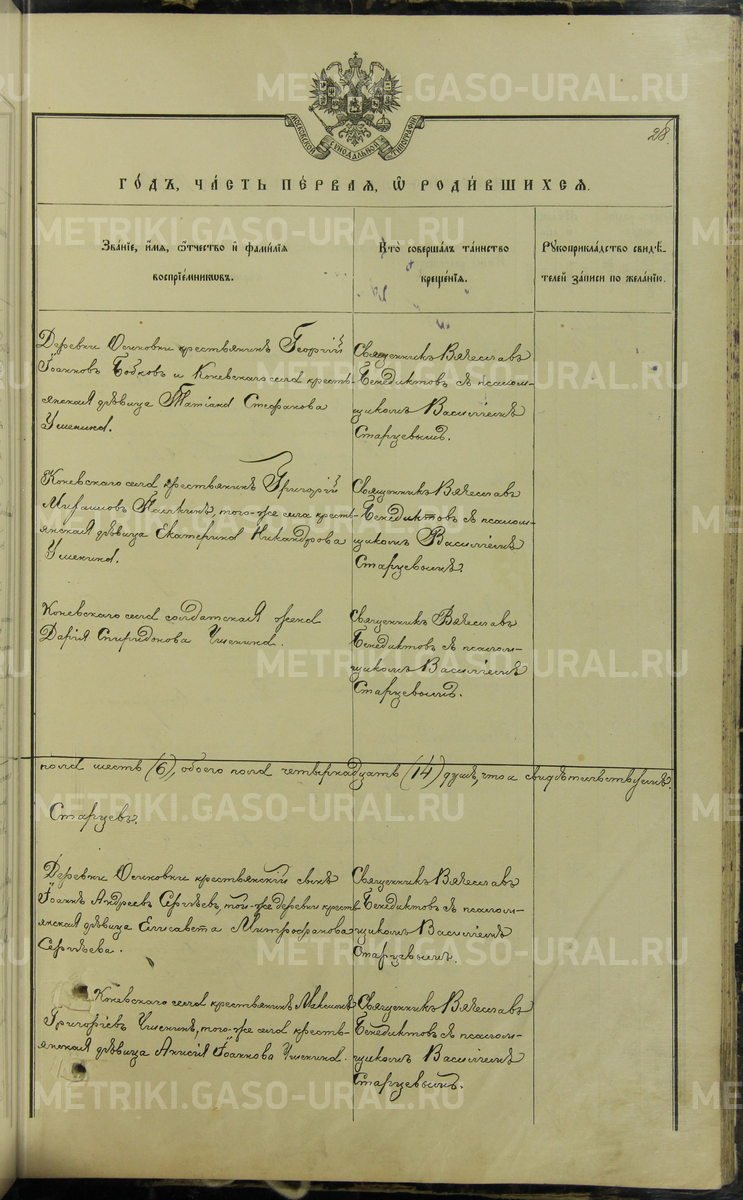 МОСКОВСКОЙ СѴНОДАЛЬНОЙ ТИПОГРАФІИ
28.
ГО́ДЪ, ЧА́СТЬ ПЕ́РВАЯ, Ѽ РОДИ́ВШИХСЯ.
Зва́нїе, и́мя, ѻ҆́тчество и҆ фами́лїя
воспрїе́мниковъ.
Кто̀ соверша́лъ та́инство
креще́нїя.
Рꙋкоприкла́дство свидѣ́-
телей за́писи по жела́нїю.
Деревни Осиновки крестьянинъ Георгій
Іоанновъ Бобковъ и Коневскаго села кресть-
янская дѣвица Татіана Стефанова
Ушенина.
Священникъ Вячеславъ
Бенедиктовъ съ псалом-
щикомъ Василіемъ
Старцевымъ.
Коневскаго села крестьянинъ Григорій
того-же села кресть-
янская дѣвица Екатерина Никандрова
Ушенина.
Священникъ Вячеславъ
Бенедиктовъ съ псалом-
щикомъ Василіемъ
Старцевымъ.
Коневскаго села солдатская жена
Дарія Спиридонова Ушенина.
Священникъ Вячеславъ
Бенедиктовъ съ псалом-
щикомъ Василіемъ
Старцевымъ.
пола шесть (6), обоего пола четырнадцать (14) душъ, что и свидѣтельствуемъ.
Старцевъ.
Деревни Осиновки крестьянскій сынъ
Іоаннъ Андреевъ Сергѣевъ, той-же деревни кресть-
янская дѣвица Елисавета Митрофанова
Сергѣева.
Священникъ Вячеславъ
Бенедиктовъ съ псалом-
щикомъ Василіемъ
Старцевымъ.
Коневскаго села крестьянинъ Максимъ
Григоріевъ Ушенинъ, того-же села кресть-
янская дѣвица Анисія Іоаннова Ушенина.
Священникъ Вячеславъ
Бенедиктовъ съ псалом-
щикомъ Василіемъ
Старцевымъ.
METRIKI.GASO-URAL.RU
METRIKI.GASO-URAL.RU
METRIKI.GASO-URAL.RU
METRIKI.GASO-URAL.RU
METRIKI.GASO-URAL.RU
METRIKI.GASO-URAL.RU
METRIKI.GASO-URAL.RU
METRIKI.GASO-URAL.RU